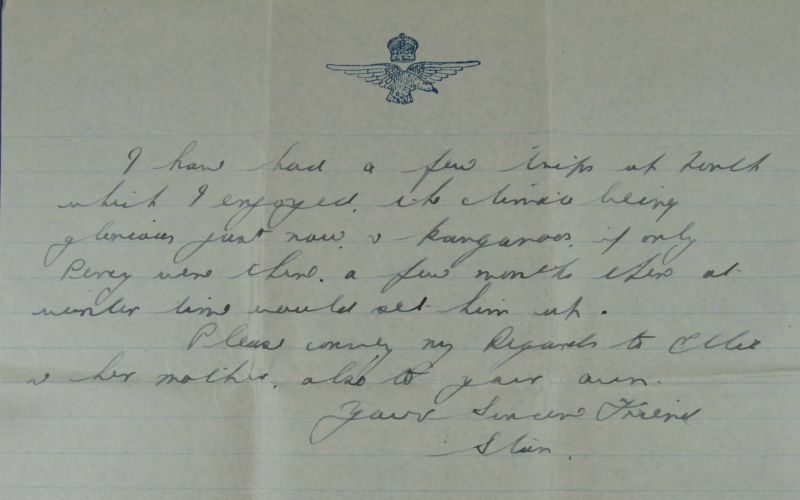 I have had a few trips up North
which I enjoyed, the climate being
glorious just now, & kangaroos, if only
Percy were there, a few months there at
winter time would set him up.
Please convey my Regards to
& her mother, also to your own.
Yours Sincere Friend
Stan.